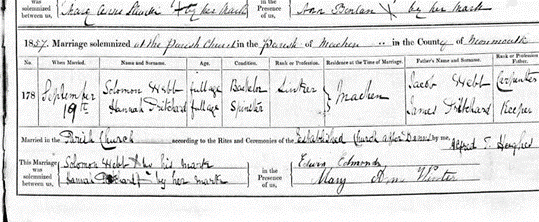 was solemnized between us, by her mark in the Presence of us, Ann by her mark
1857. Marriage solemnized at the Parish Church in the Parish of Machen in the County of Monmouth
No. When Married. Name and Surname. Age. Condition. Rank or Profession. Residence at the Time of Marriage. Father's Name and Surname. Rank or Profession of Father.
178 September 19th Solomon Webb full age Bachelor Machen Jacob Webb Carpenter
Hannah Pritchard full age Spinster James Pritchard Keeper
Married in the Parish Church according to the Rites and Ceremonies of the Established Church after Banns by me,
This Marriage was solemnized between us, Solomon Webb X his mark in the Presence of us, Edwin Edmonds
Hannah Pritchard X by her mark Mary Ann